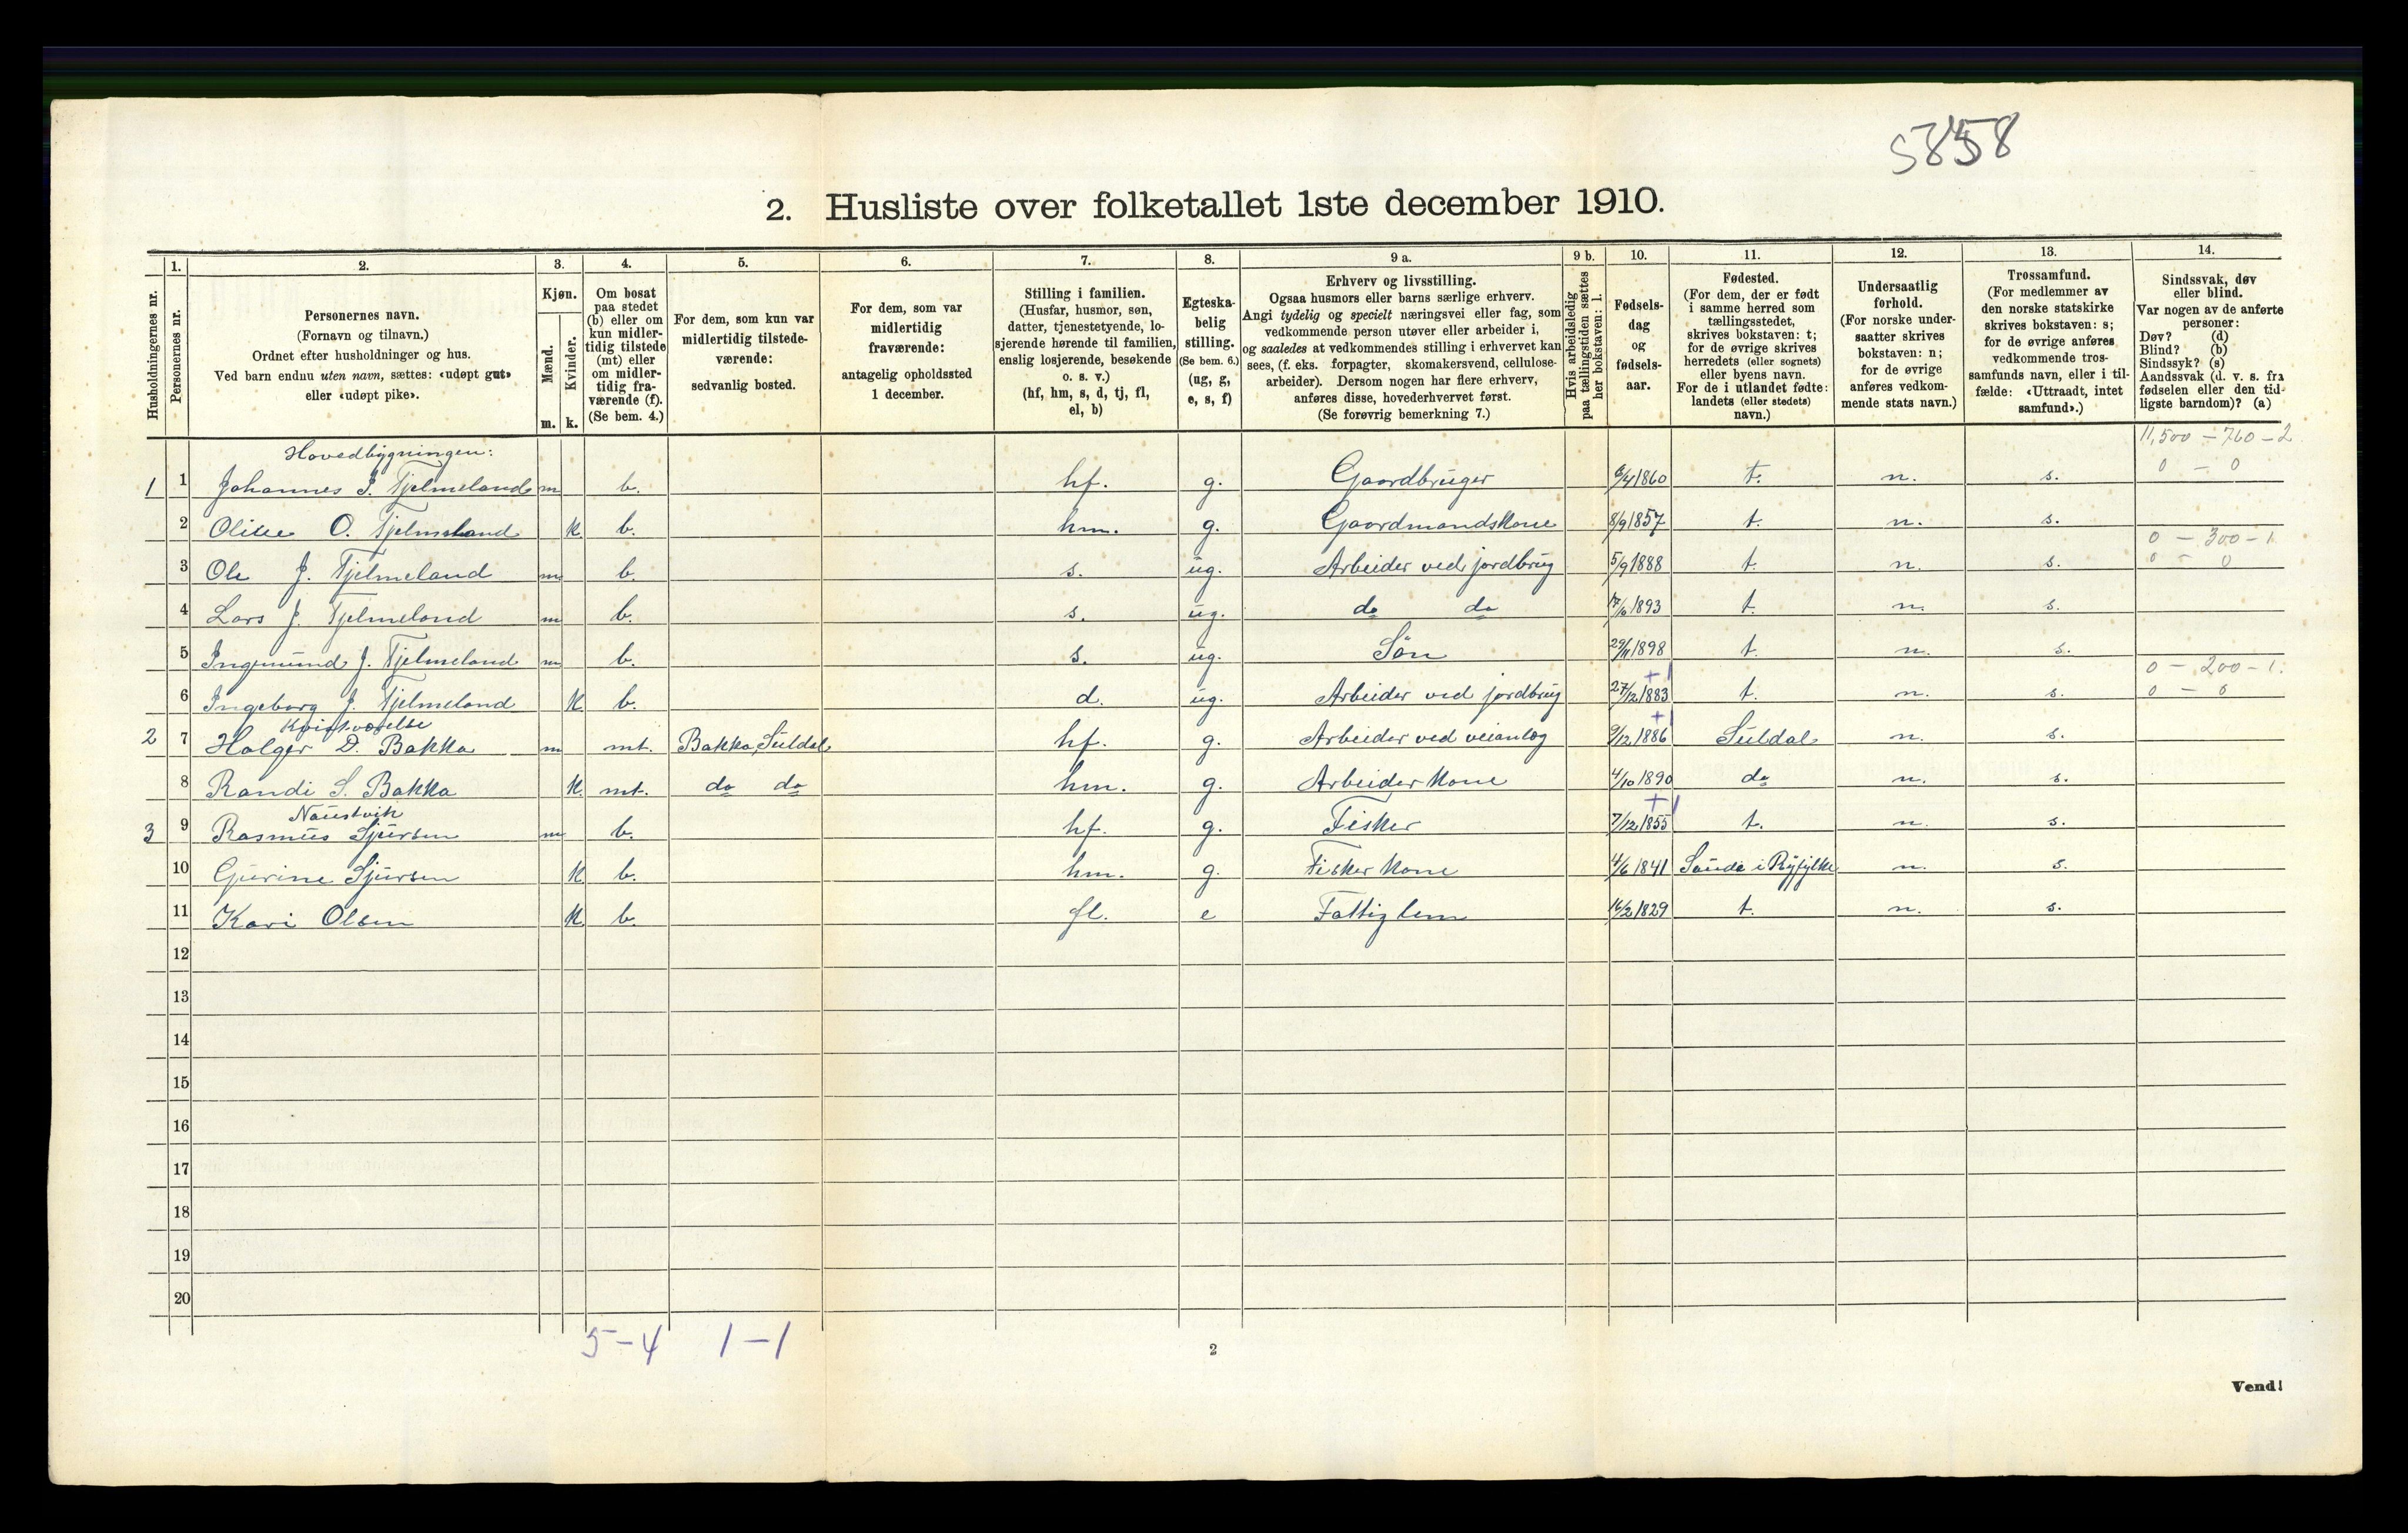 5858
2. Husliste over folketallet 1ste december 1910.
Husholdningernes nr.
1. Personernes nr.
2. Personernes navn.
(Fornavn og tilnavn.)
Ordnet efter husholdninger og hus.
Ved barn endnu uten navn, sættes: «udøpt gut»
eller «udøpt pike».
3. Kjøn.
Mænd. Kvinder.
m. k.
4. Om bosat
paa stedet
(b) eller om
kun midler-
tidig tilstede
(mt) eller
om midler-
tidig fra-
værende (f).
(Se bem. 4.)
5. For dem, som kun var
midlertidig tilstede-
værende:
sedvanlig bosted.
6. For dem, som var
midlertidig
fraværende:
antagelig opholdssted
1 december.
7. Stilling i familien.
(Husfar, husmor, søn,
datter, tjenestetyende, lo-
sjerende hørende til familien,
enslig losjerende, besøkende
o. s. v.)
(hf, hm, s, d, tj, fl,
el, b)
8. Egteska-
belig
stilling.
(Se bem. 6.)
(ug, g,
e, s, f)
9 a. Erhverv og livsstilling.
Ogsaa husmors eller barns særlige erhverv.
Angi tydelig og specielt næringsvei eller fag, som
vedkommende person utøver eller arbeider i,
og saaledes at vedkommendes stilling i erhvervet kan
sees, (f. eks. forpagter, skomakersvend, cellulose-
arbeider). Dersom nogen har flere erhverv,
anføres disse, hovederhvervet først.
(Se forøvrig bemerkning 7.)
9 b. Hvis arbeidsledig
paa tællingstiden sættes
her bokstaven: l.
10. Fødsels-
dag
og
fødsels-
aar.
11. Fødested.
(For dem, der er født
i samme herred som
tællingsstedet,
skrives bokstaven: t;
for de øvrige skrives
herredets (eller sognets)
eller byens navn.
For de i utlandet fødte:
landets (eller stedets)
navn.)
12. Undersaatlig
forhold.
(For norske under-
saatter skrives
bokstaven: n;
for de øvrige
anføres vedkom-
mende stats navn.)
13. Trossamfund.
(For medlemmer av
den norske statskirke
skrives bokstaven: s;
for de øvrige anføres
vedkommende tros-
samfunds navn, eller i til-
fælde: «Uttraadt, intet
samfund».)
14. Sindssvak, døv
eller blind.
Var nogen av de anførte
personer:
Døv? (d)
Blind? (b)
Sindssyk? (s)
Aandssvak (d. v. s. fra
fødselen eller den tid-
ligste barndom)? (a)
11,500 - 760 - 2
Hovedbygningen:
0 - 0
1 1 Johannes J. Tjelmeland m b. hf. g. Gaardbruger 6/4 1860 t. n. s.
2 Oline O. Tjelmeland k b. hm. g. Gaardmandskone 8/9 1857 t. n. s.
0 - 300 - 1
0 - 0
3 Ole J. Tjelmeland m b. s. ug. Arbeider ved jordbrug 5/9 1888 t. n. s.
4 Lars J. Tjelmeland m b. s. ug. do do 1893 t. n. s.
5 Ingmund J. Tjelmeland m b. s. ug. Søn 29/11 1898 t. n. s.
0 - 200 - 1.
0 - 0
+1
6 Ingeborg J. Tjelmeland k b. d. ug. Arbeider ved jordbrug 27/12 1883 t. n. s.
Kvistværelse
+1
2 7 Holger D. Bakka m mt. Bakka, Suldal hf. g. Arbeider ved veianlæg 9/12 1886 Suldal n. s.
8 Randi S. Bakka k mt. do do hm. g. Arbeiderkone 4/10 1890 do n. s.
Naustvik
+1
3 9 Rasmus Sjursen m b. hf. g. Fisker 7/12 1855 t. n. s.
10 Gurine Sjursen k b. hm. g. Fiskerkone 4/6 1841 Saude i Ryfylke n. s.
11 Kari Olsen k b. fl. e Fattiglem 16/2 1829 t. n. s.
12
13
14
15
16
17
18
19
20
5-4 1-1
2
Vend!